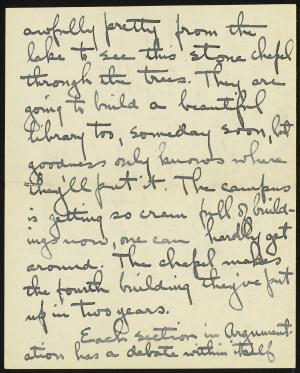 awfully pretty from the
lake to see this stone chapel
through the trees. They are
going to build a beautiful
library too, someday soon, but
goodness only knows where
they'll put it. The campus
is getting so cram full of build-
ings now, one can hardly get
around. The chapel makes
the fourth building they've put
up in two years.
Each section in Argument-
ation has a debate within itself